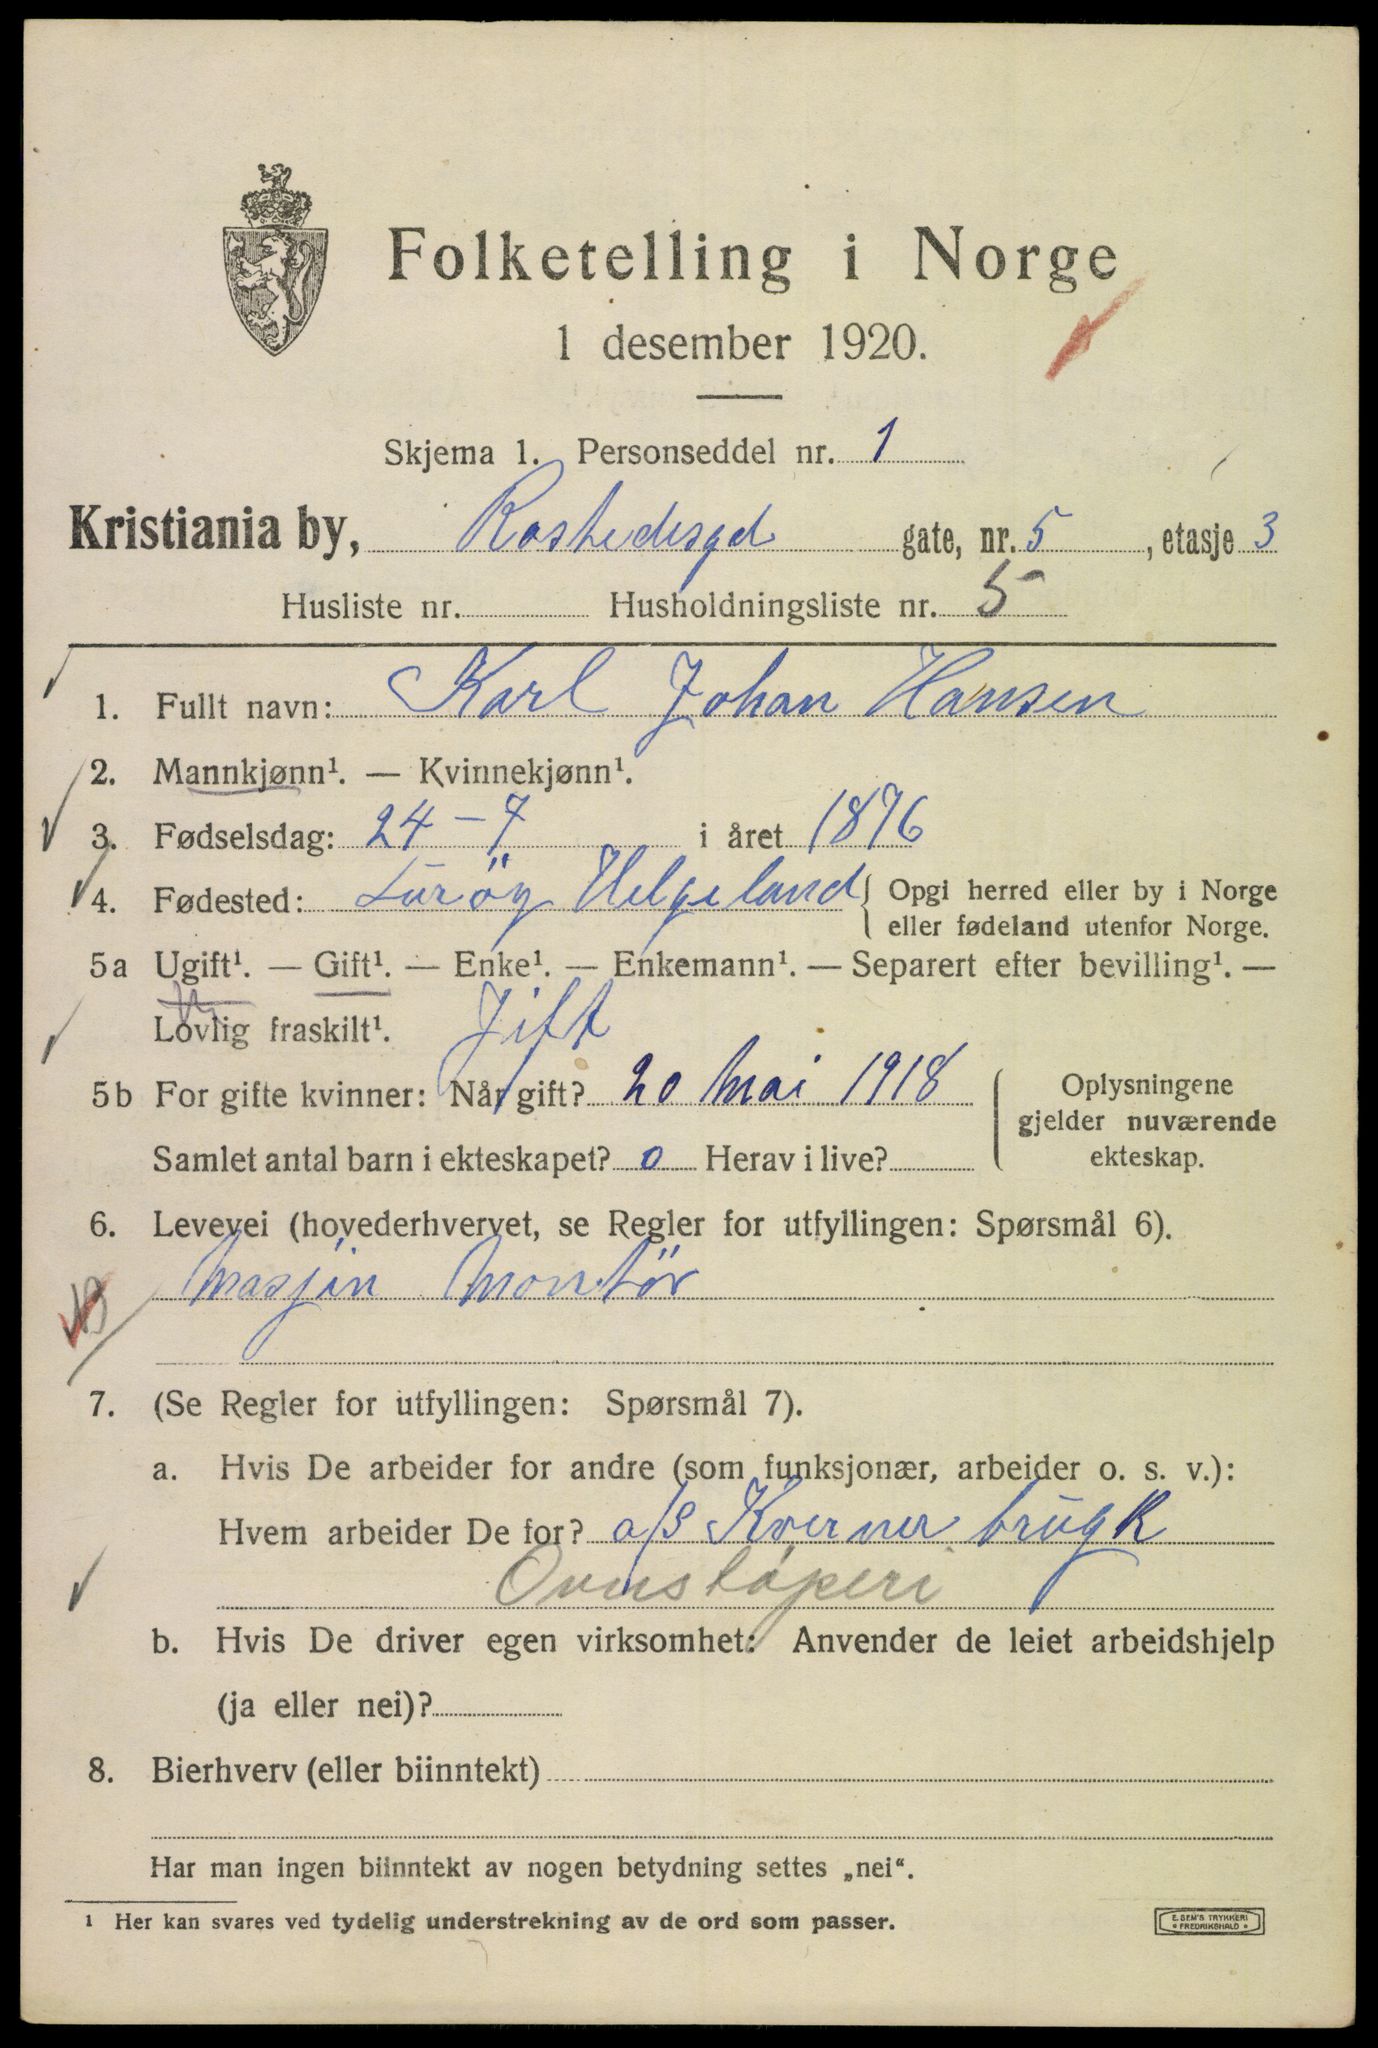 Folketelling i Norge
1 desember 1920.
Skjema 1. Personseddel nr. 1
Kristiania by, Rostedsgd gate, nr. 5, etasje 3
Husliste nr. Husholdningsliste nr. 5
1. Fullt navn: Karl Johan Hansen
2. Mannkjønn¹. — Kvinnekjønn¹.
3. Fødselsdag: 24 – 7 i året 1876
4. Fødested: Luröy Helgeland { Opgi herred eller by i Norge
eller fødeland utenfor Norge.
5a Ugift¹. — Gift¹. — Enke¹. — Enkemann¹. — Separert efter bevilling¹. —
Lovlig fraskilt¹. Jift
5b For gifte kvinner: Når gift? 20 Mai 1918
Samlet antal barn i ekteskapet? 0 Herav i live?
Oplysningene
gjelder nuværende
ekteskap.
6. Levevei (hovederhvervet, se Regler for utfyllingen: Spørsmål 6).
Masjin Montör
7. (Se Regler for utfyllingen: Spørsmål 7).
a. Hvis De arbeider for andre (som funksjonær, arbeider o. s. v.):
Hvem arbeider De for? a/s Kverner brugk
Ovnstöperi
b. Hvis De driver egen virksomhet: Anvender de leiet arbeidshjelp
(ja eller nei)?
8. Bierhverv (eller biinntekt)
Har man ingen biinntekt av nogen betydning settes „nei“.
¹ Her kan svares ved tydelig understrekning av de ord som passer.
E. SEM'S TRYKKERI
* FREDRIKSHALD *